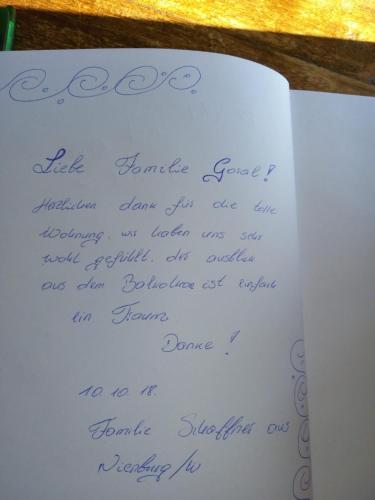 Liebe Familie Gosat!
Herzlichen dank für die tolle
Wohnung. wir haben uns sehr
wohl gefühlt. der ausblick
aus dem Balkon ist einfach
ein Traum
Danke!
10.10.18.
Familie Schaffner aus
Nienburg/W